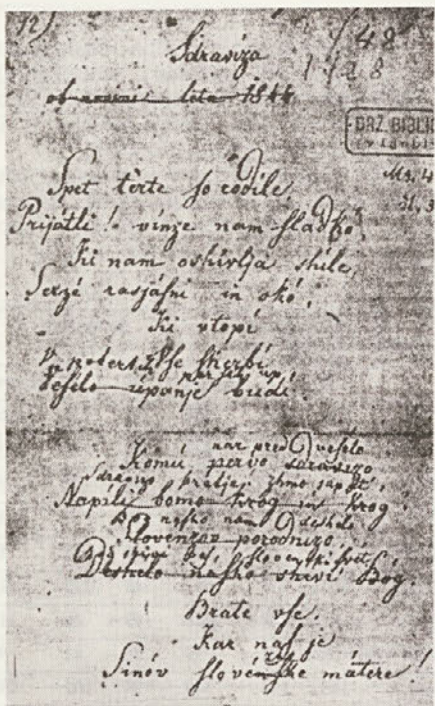 12)
148
1428
Sdravíza
ob novimi léta 1844
DRŽ. BIBLIO
Ms. 4
Spet tèrte so rodile
Prijátli! vínze nam sladkó,
Ki nam oshivlja shile,
Serzé rasjásni in okó,
Ki vtopí
Vse skerbí
V potertih persih up
Veselo úpanje budí.
nar pred veselo
Komú pervo sdravizo
Sdravizo, bratje! zhmo sapét',
Napili bomo krog in krog?
Bog nasho nam deshelo
Slovenzov porodnizo,
Bog shivi ves Slovenski svét,
Deshelo nasho shivi Bog.
Brate vse,
Kar nas je
Sinóv slovénske mátere!